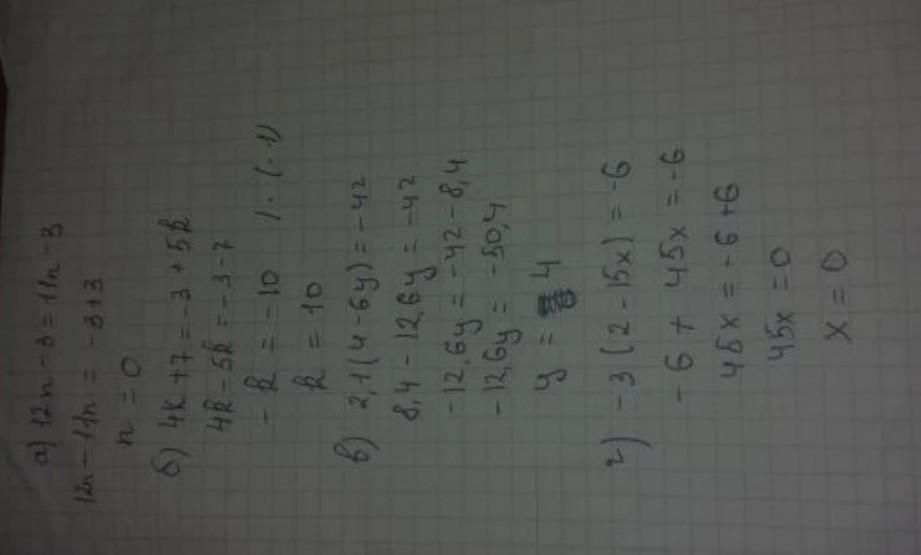 а) 12n - 3 = 11n - 3
12n - 11n = -3 + 3
n = 0
б) 4k + 7 = -3 + 5k
4k - 5k = -3 - 7
- k = -10 / · (-1)
k = 10
в) 2,1 (4 - 6y) = -42
8,4 - 12,6y = -42
-12,6y = -42 - 8,4
-12,6y = -50,4
y = 4
г) -3 (2 - 15x) = -6
- 6 + 45x = -6
45x = -6 + 6
45x = 0
x = 0